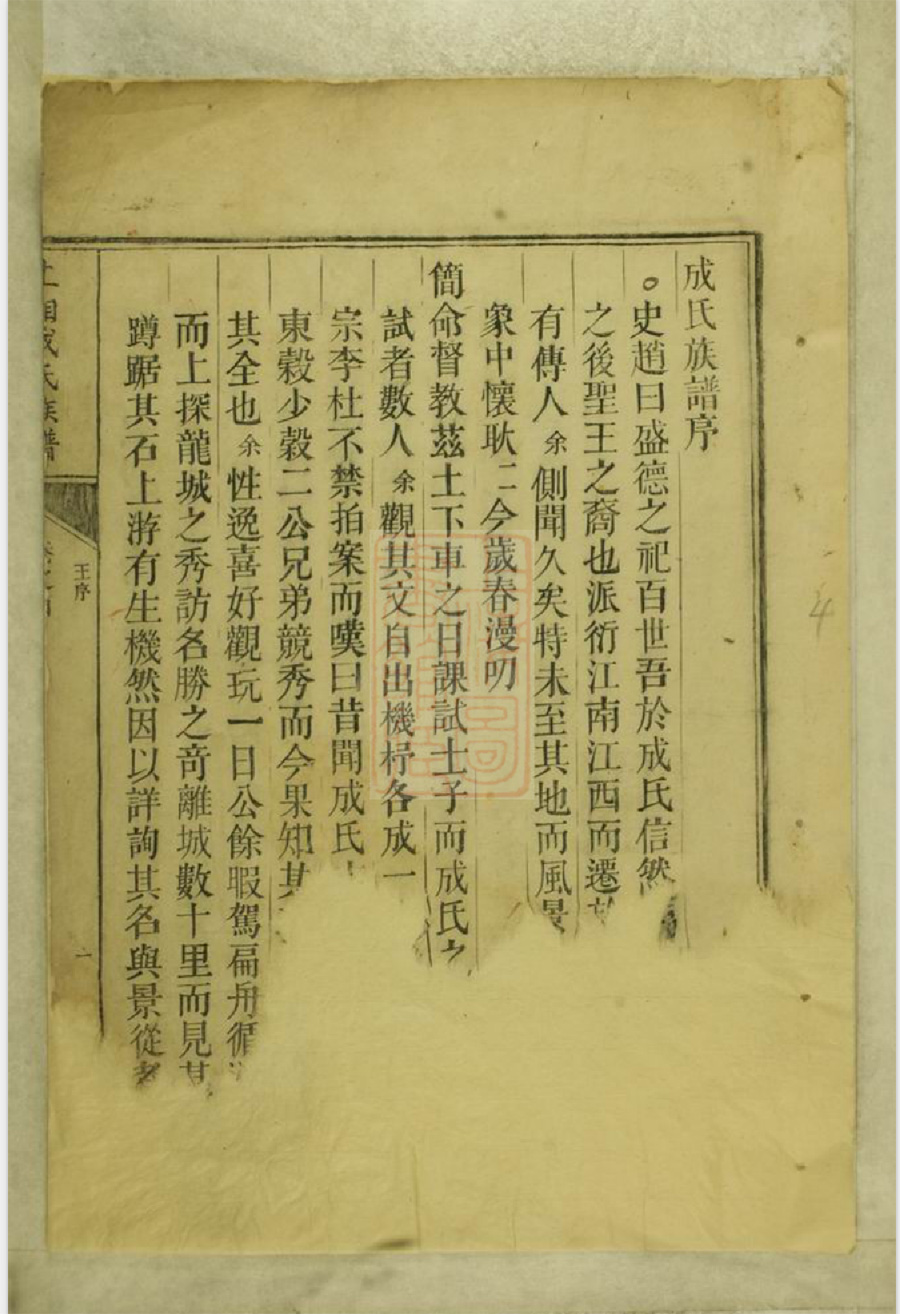 成氏族譜序
史趙曰盛德之祀百世吾於成氏信然
之後聖王之裔也派衍江南江西而遷
有傳人余側聞久矣特未至其地而風景
象中懷耿〻今歲春漫叨
簡命督教茲土下車之日課試士子而成氏之
試者數人余觀其文自出機杼各成一
宗李杜不禁拍案而嘆曰昔聞成氏
東榖少榖二公兄弟競秀而今果知其
其全也余性逸喜好觀玩一日公餘暇駕扁舟循
而上探龍城之秀訪名勝之竒離城數十里而見其
蹲踞其石上游有生機然因以詳詢其名與景從者
上湘成氏族譜
王序
一
4